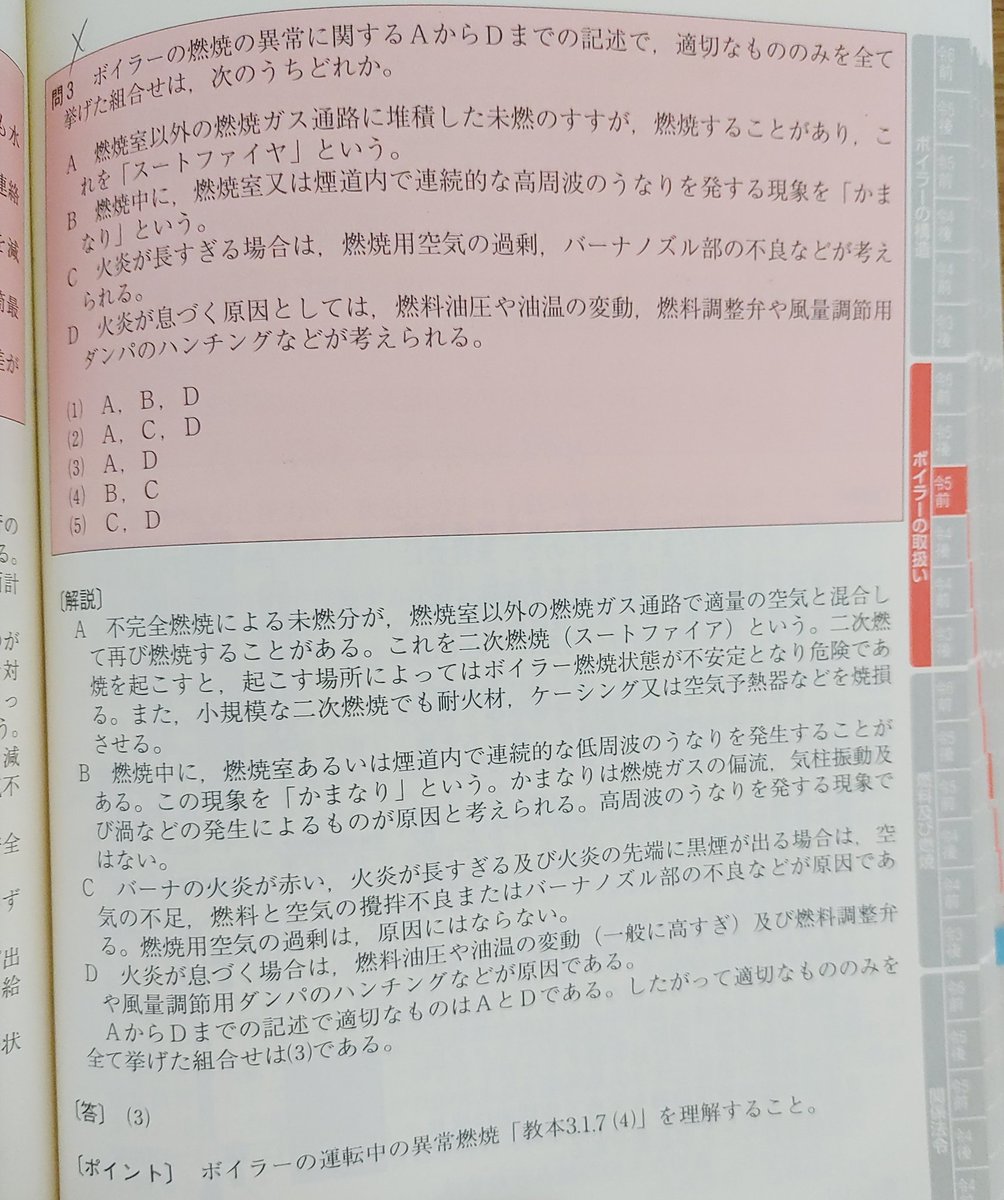 問3 ボイラーの燃焼の異常に関するAからDまでの記述で，適切なもののみを全て
挙げた組合せは，次のうちどれか。
A 燃焼室以外の燃焼ガス通路に堆積した未燃のすすが，燃焼することがあり，こ
れを「スートファイヤ」という。
B 燃焼中に，燃焼室又は煙道内で連続的な高周波のうなりを発する現象を「かま
なり」という。
C 火炎が長すぎる場合は，燃焼用空気の過剰，バーナノズル部の不良などが考え
られる。
D 火炎が息づく原因としては，燃料油圧や油温の変動，燃料調整弁や風量調節用
ダンパのハンチングなどが考えられる。
(1) A，B，D
(2) A，C，D
(3) A，D
(4) B，C
(5) C，D
〔解説〕
A 不完全燃焼による未燃分が，燃焼室以外の燃焼ガス通路で適量の空気と混合し
て再び燃焼することがある。これを二次燃焼（スートファイア）という。二次燃
焼を起こすと，起こす場所によってはボイラー燃焼状態が不安定となり危険であ
る。また，小規模な二次燃焼でも耐火材，ケーシング又は空気予熱器などを焼損
させる。
B 燃焼中に，燃焼室あるいは煙道内で連続的な低周波のうなりを発生することが
ある。この現象を「かまなり」という。かまなりは燃焼ガスの偏流，気柱振動及
び渦などの発生によるものが原因と考えられる。高周波のうなりを発する現象で
はない。
C バーナの火炎が赤い，火炎が長すぎる及び火炎の先端に黒煙が出る場合は，空
気の不足，燃料と空気の攪拌不良またはバーナノズル部の不良などが原因であ
る。燃焼用空気の過剰は，原因にはならない。
D 火炎が息づく場合は，燃料油圧や油温の変動（一般に高すぎ）及び燃料調整弁
や風量調節用ダンパのハンチングなどが原因である。
AからDまでの記述で適切なものはAとDである。したがって適切なもののみを
全て挙げた組合せは(3)である。
〔答〕 (3)
〔ポイント〕 ボイラーの運転中の異常燃焼「教本3.1.7 (4)」を理解すること。
ボイラーの構造
ボイラーの取扱い
令5
前
関係法令